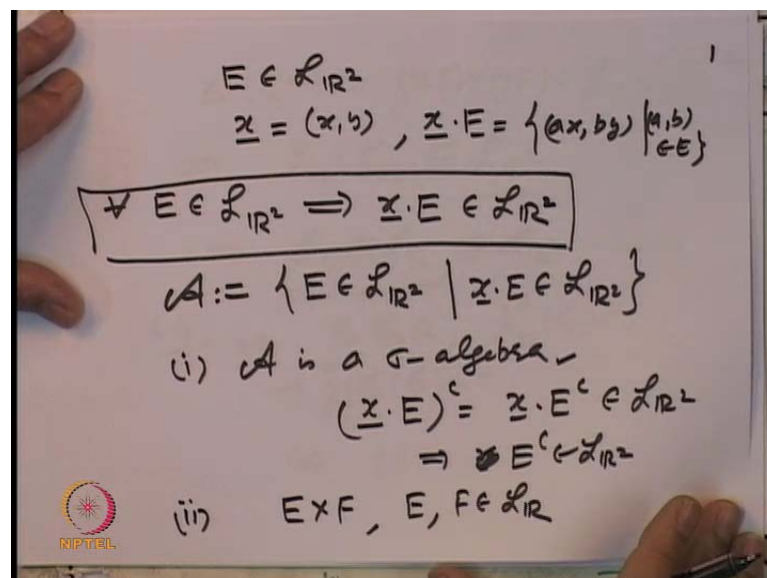 1
E ∈ ℒ_ℝ²
x = (x, y) , x · E = {(ax, by) | (a, b) ∈ E}
∀ E ∈ ℒ_ℝ² ⟹ x · E ∈ ℒ_ℝ²
𝒜 := {E ∈ ℒ_ℝ² | x · E ∈ ℒ_ℝ²}
(i) 𝒜 is a σ-algebra ✓
(x · E)^c = x · E^c ∈ ℒ_ℝ²
⟹ E^c ∈ ℒ_ℝ²
(ii) E × F , E, F ∈ ℒ_ℝ
NPTEL